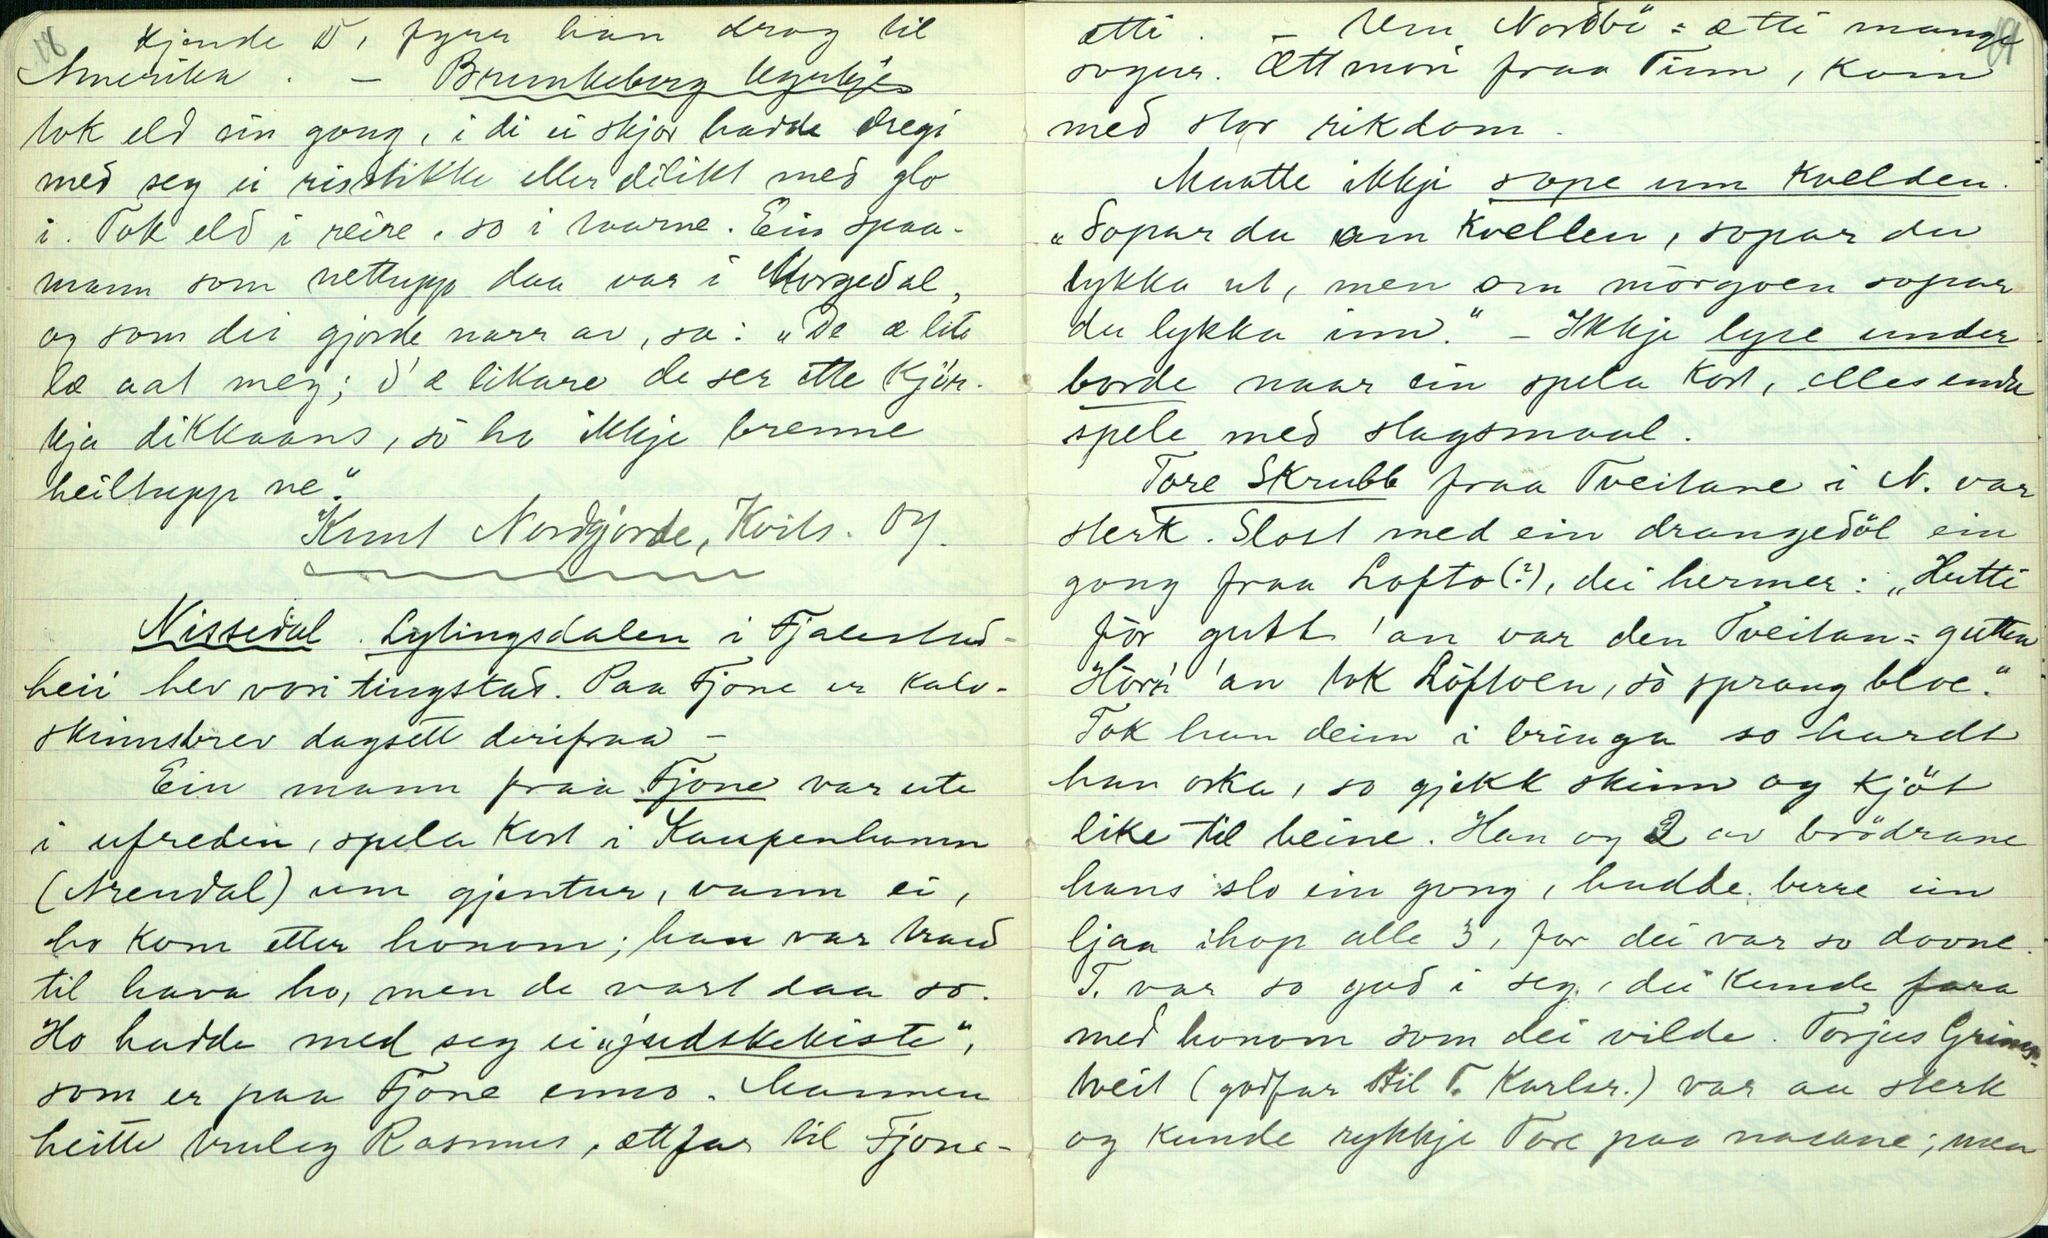 18
kjende D, fyrr han drog til
Amerika. — Brunkeberg kyrkje
tok eld ein gong, i di ei skjor hadde dregi
med seg ei risstikke eller dilikt med glo
i. Tok eld i reire, so i taarne. Ein spaa-
mann som nettupp daa var i Morgedal,
og som dei gjorde narr av, sa: „De æ lite
læ aat meg; d'æ likare de ser ette kjør-
kja dikkaans, so ho ikkje brenne
heiltupp ne."
Knut Nordgjorde, Kvits. 09.
Nissedal. Lytingsdalen i Fjalestad-
heii hev vori tingstad. Paa Fjone er kalv-
skinnsbrev dagsett derifraa —
Ein mann fraa Fjone var ute
i ufreden, spela kort i Kaupenhamn
(Arendal) um gjentur, vann ei,
ho kom etter honom; han var traud
til hava ho, men de vart daa so.
Ho hadde med seg ei „judskekiste",
som er paa Fjone enno. Mannen
heitte truleg Rasmus, ættfar til Fjone-
19
ætti. — Um Nordbö-ætti mange
sogur. Ættmori fraa Tinn, kom
med stor rikdom.
Maatte ikkje sope um kvelden.
„Sopar du om kvellen, sopar du
lykka ut, men om mörgoen sopar
du lykka inn." — Ikkje lyse under
borde naar ein spela kort, elles enda
spele med slagsmaal.
Tore Skrubb fraa Tveitane i N. var
sterk. Slost med ein drangedöl ein
gong fraa Lofto(?), dei hermer: „Hutti
för gutt 'an var den Tveitan-gutten
Hörr 'an tok Löftoen, so sprang bloe."
Tok han deim i bringa so hardt
han orka, so gjekk skinn og kjöt
like til beine. Han og 2 av brödrane
hans slo ein gong, hadde berre ein
ljaa ihop alle 3, for dei var so dovne.
T. var so god i seg, dei kunde fara
med honom som dei vilde. Torjus Grims-
tveit (godfar til T. Karlsr.) var au sterk
og kunde rykkje Tore paa nasane; men